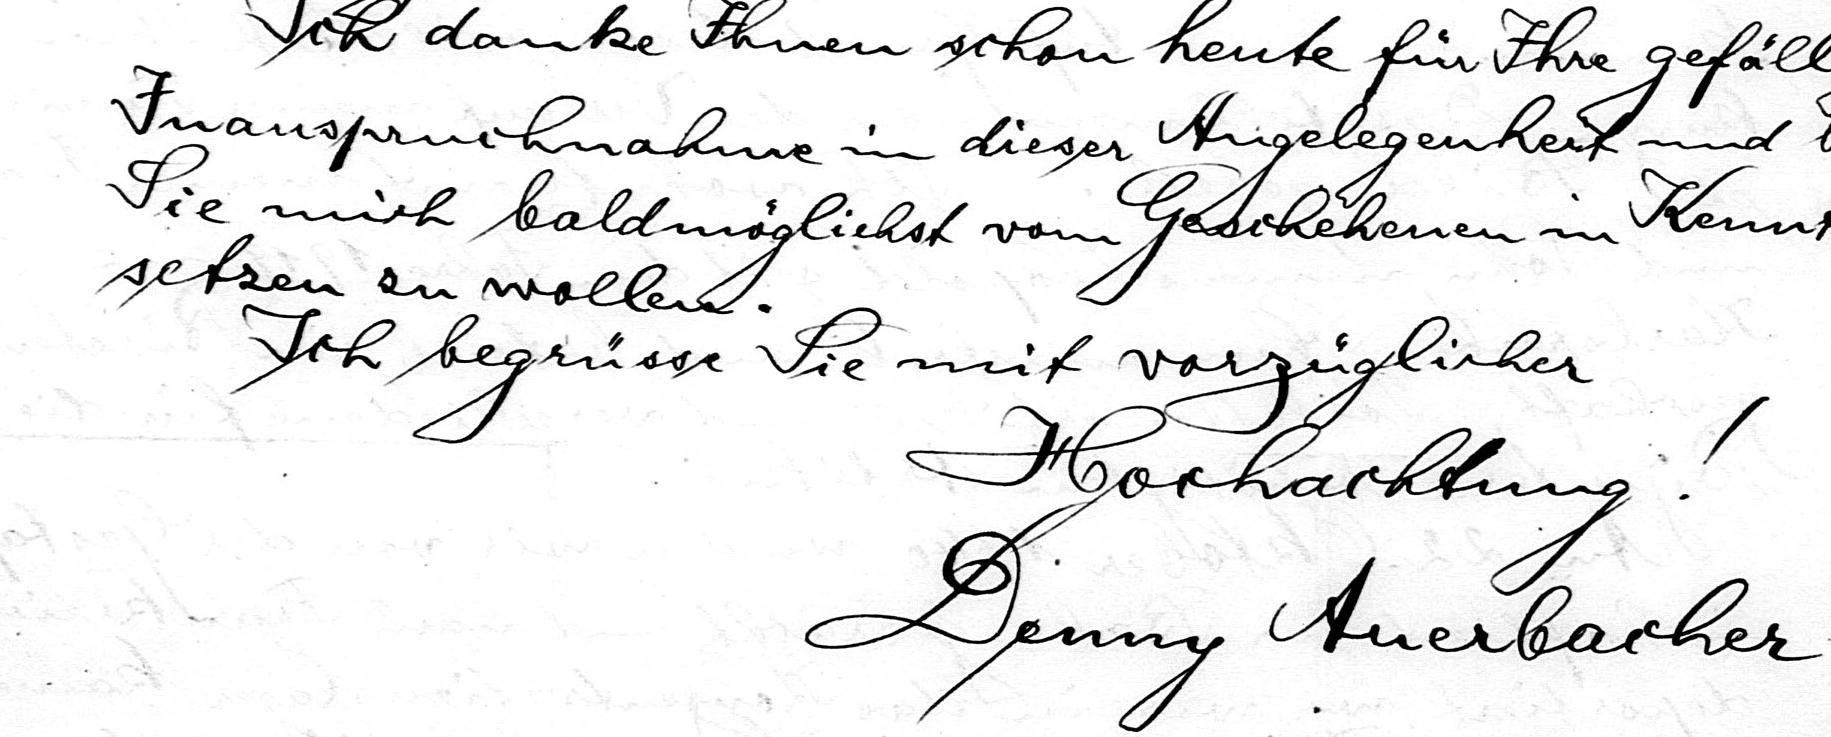 Ich danke Ihnen schon heute für Ihre gefäll
Inanspruchnahme in dieser Angelegenheit und
Sie mich baldmöglichst vom Geschehenen in Kennt
setzen zu wollen.
Ich begrüsse Sie mit vorzüglicher
Hochachtung!
Denny Auerbacher